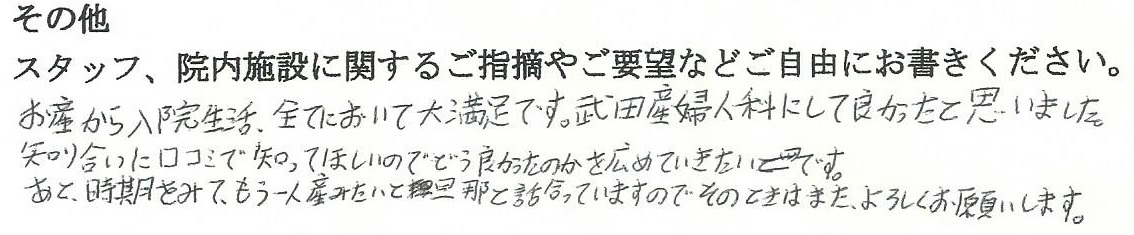 その他
スタッフ、院内施設に関するご指摘やご要望などご自由にお書きください。
お産から入院生活、全てにおいて大満足です。武田産婦人科にして良かったと思いました。
知り合いに口コミで知ってほしいのでどう良かったのかを広めていきたいです。
あと、時期をみて、もう一人産みたいと旦那と話合っていますのでそのときはまた、よろしくお願いします。